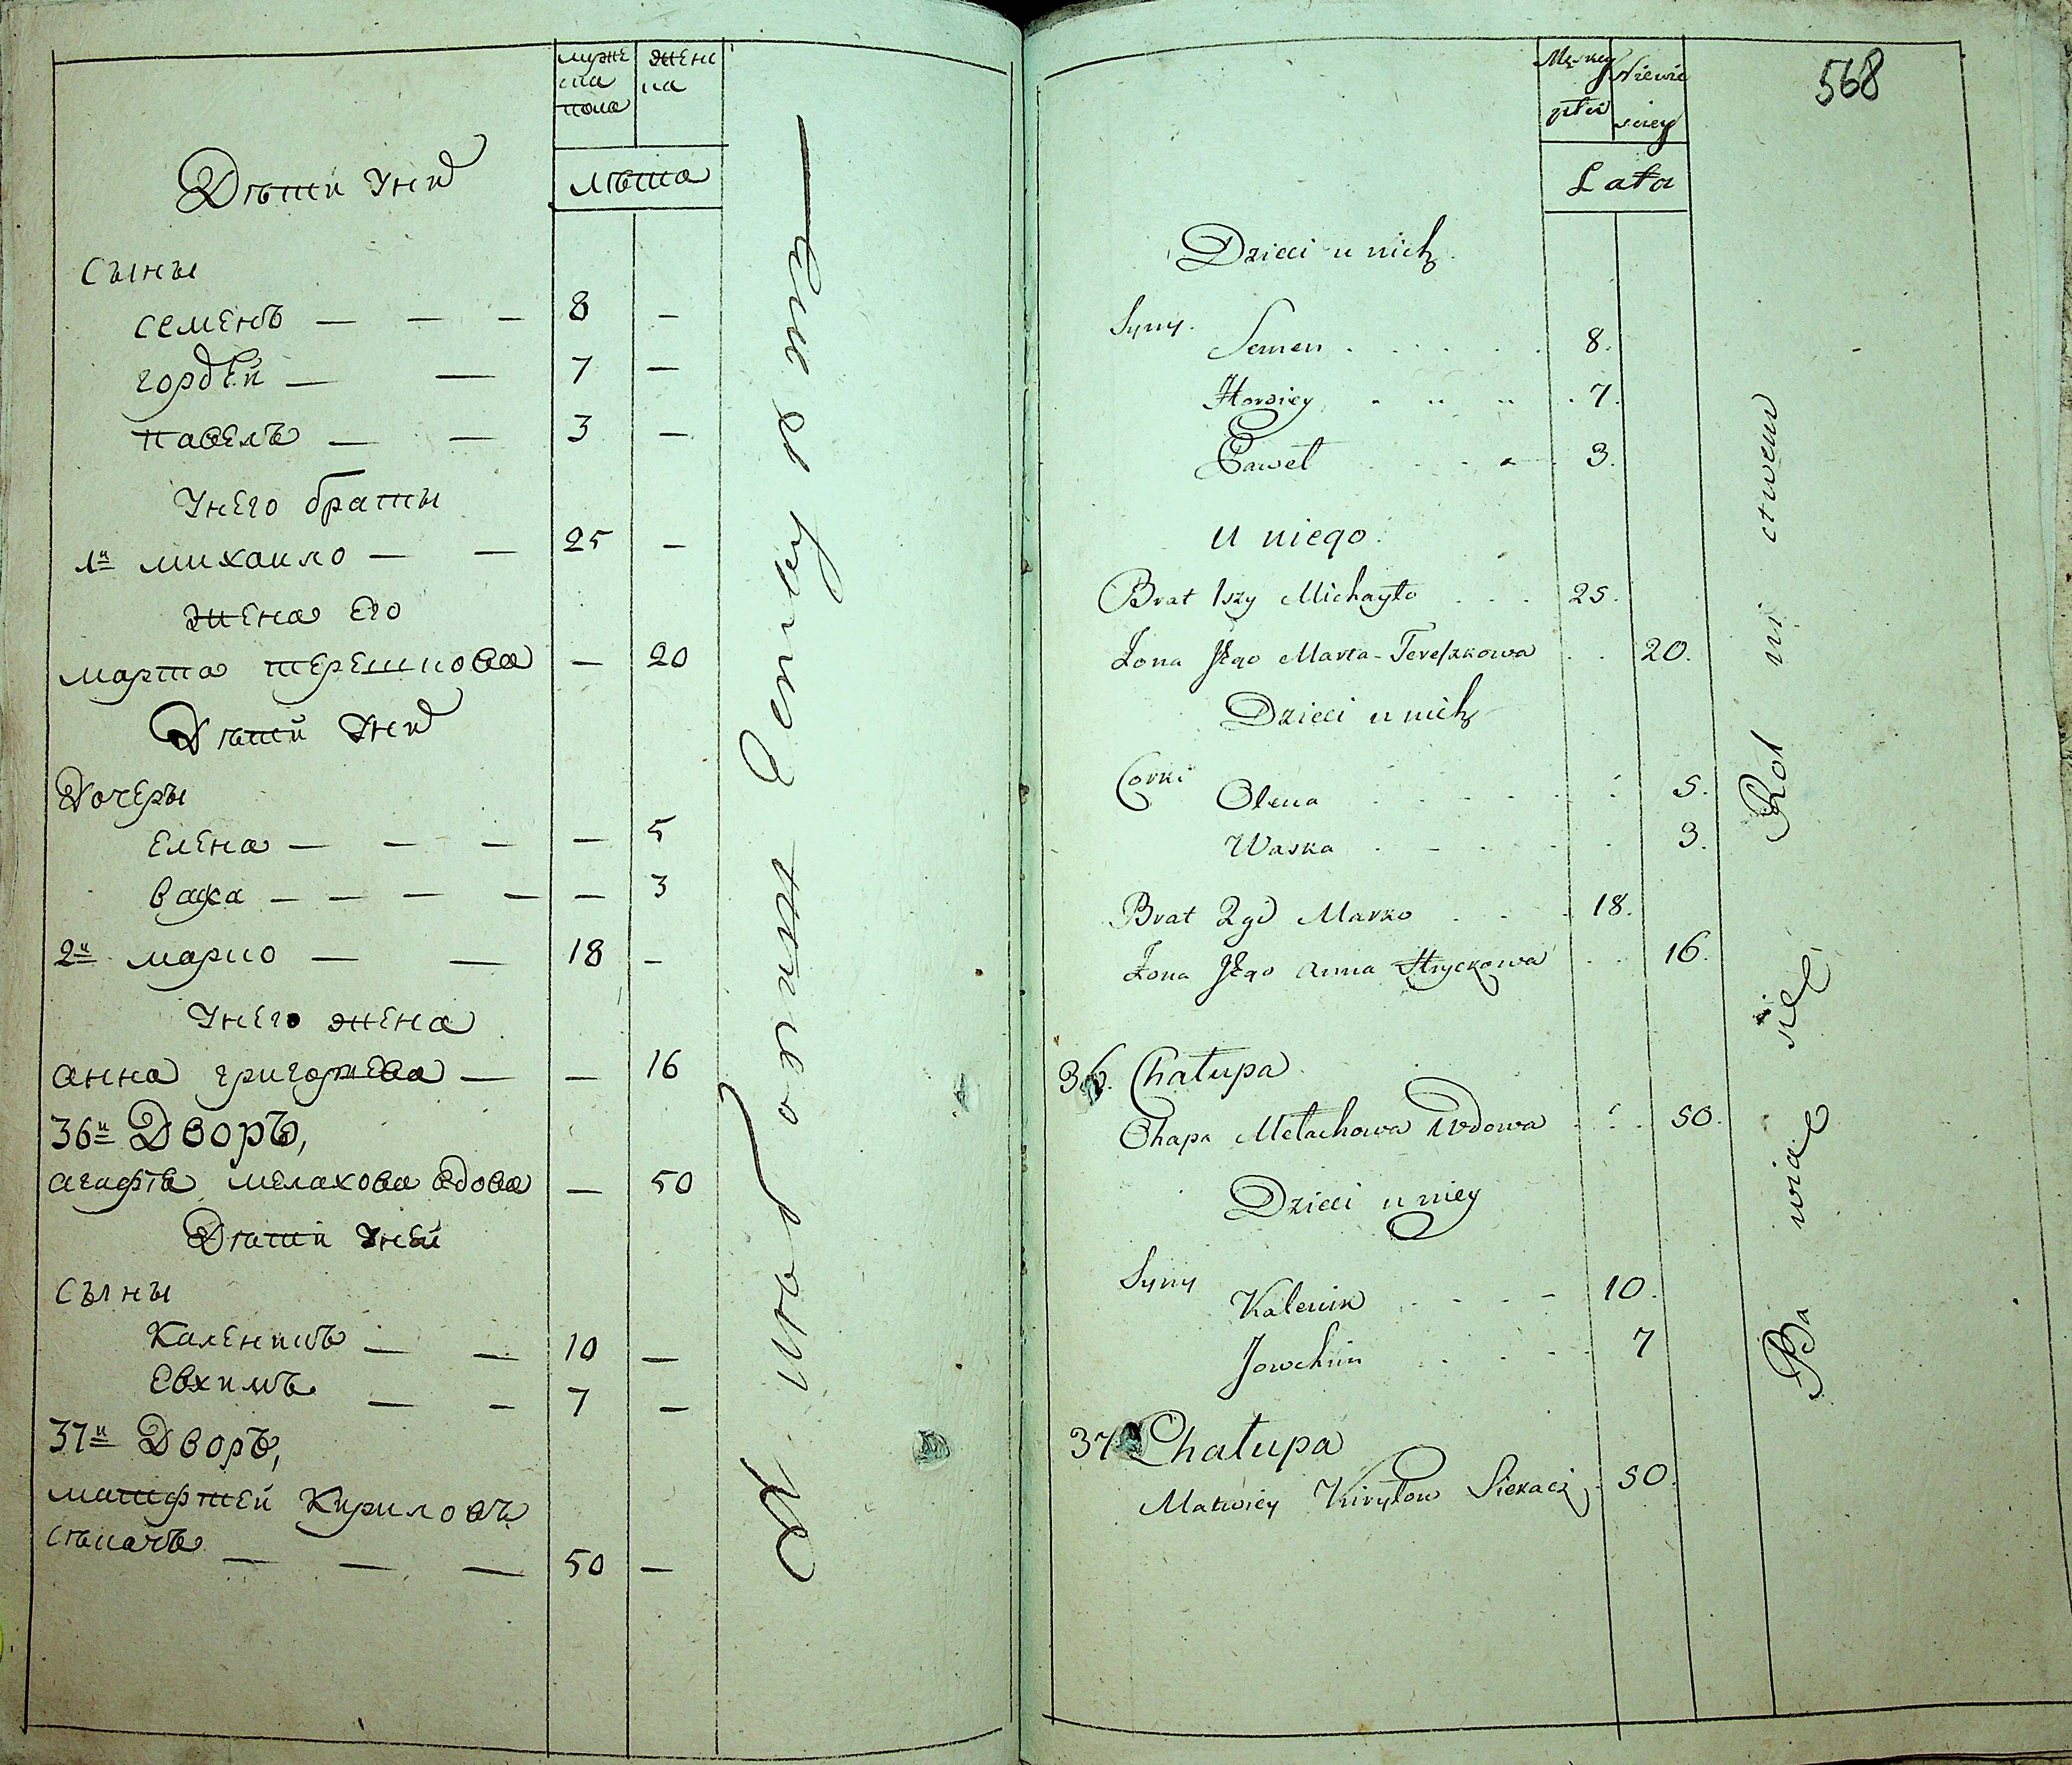 муже
ска
пола
женс
ка
лѣта
Дѣти унихъ
сыны
семенъ — — — 8 —
гордѣй — — 7 —
павелъ — — 3 —
Унего браты
1й михаило — — 25 —
жена его
марта терешкова — 20
Дѣтей унихъ
Дочеры
Елена — — — — 5
васка — — — — — 3
2й марко — — 18 —
Унего жена
анна григорьева — — 16
36й Дворъ,
агафія мелахова вдова — 50
Дѣтей уней
сыны
Каленикъ — — 10 —
Евхимъ — — 7 —
37й Дворъ,
матфтей Кириловъ
сѣкачъ — — — 50 —
568
Męzkiey
płci
Niewie
sciey
Lata
Dzieci u nich
Syny.
Semen . . . . . 8.
Hordiey . . . . 7.
Paweł . . . . 3.
U niego.
Brat 1szy Michayło . . . 25.
Żona Jego Marta Tereszkowa . . 20.
Dzieci u nich
Corki
Olena . . . . . 5.
Waska . . . . . 3.
Brat 2gi Marko . . . 18.
Żona Jego Anna Hryckowa . . 16.
36. Chałupa
Ohapa Mełachowa Wdowa . . . 50.
Dzieci u niey
Syny
Kalenik . . . . 10.
Jowchim . . . . 7
37 Chałupa
Matwiey Kiryłow Siekacz . 50.
Ba wiąc się Rol ni ctwem